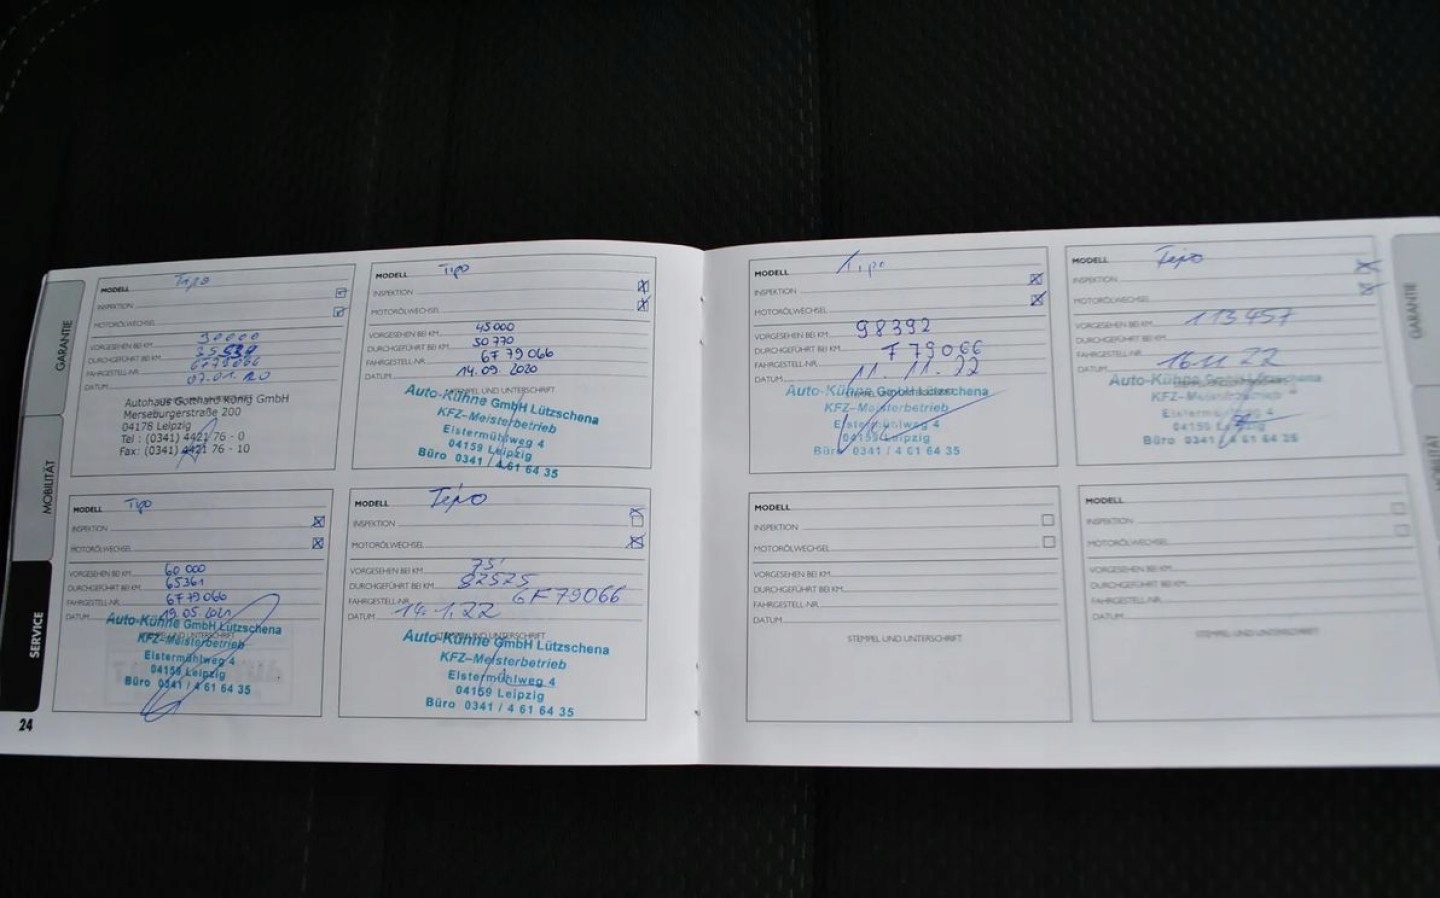 GARANTIE
MOBILITÄT
SERVICE
24
MODELL Tipo
INSPEKTION
MOTORÖLWECHSEL
VORGESEHEN BEI KM 30000
DURCHGEFÜHRT BEI KM
FAHRGESTELL-NR. 6F79066
DATUM 07.01.20
Autohaus Gotthard König GmbH
Merseburgerstraße 200
04178 Leipzig
Tel : (0341) 4421 76 - 0
Fax: (0341) 4421 76 - 10
MODELL Tipo
INSPEKTION
MOTORÖLWECHSEL
VORGESEHEN BEI KM 45000
DURCHGEFÜHRT BEI KM 50770
FAHRGESTELL-NR. 6F 79 066
DATUM 14.09.2020
STEMPEL UND UNTERSCHRIFT
Auto-Kühne GmbH Lützschena
KFZ-Meisterbetrieb
Elstermühlweg 4
04159 Leipzig
Büro 0341 / 4 61 64 35
MODELL Tipo
INSPEKTION
MOTORÖLWECHSEL
VORGESEHEN BEI KM 60 000
DURCHGEFÜHRT BEI KM 65361
FAHRGESTELL-NR. 6F79066
DATUM 19.05.2021
STEMPEL UND UNTERSCHRIFT
Auto-Kühne GmbH Lützschena
KFZ-Meisterbetrieb
Elstermühlweg 4
04159 Leipzig
Büro 0341 / 4 61 64 35
MODELL Tipo
INSPEKTION
MOTORÖLWECHSEL
VORGESEHEN BEI KM 75'
DURCHGEFÜHRT BEI KM 82525
FAHRGESTELL-NR. 6F79066
DATUM 14.1.22
STEMPEL UND UNTERSCHRIFT
Auto-Kühne GmbH Lützschena
KFZ-Meisterbetrieb
Elstermühlweg 4
04159 Leipzig
Büro 0341 / 4 61 64 35
MODELL Tipo
INSPEKTION
MOTORÖLWECHSEL
VORGESEHEN BEI KM 98392
DURCHGEFÜHRT BEI KM
FAHRGESTELL-NR. F 79066
DATUM 11.11.22
Auto-Kühne GmbH Lützschena
KFZ-Meisterbetrieb
Elstermühlweg 4
04159 Leipzig
Büro 0341 / 4 61 64 35
MODELL Tipo
INSPEKTION
MOTORÖLWECHSEL
VORGESEHEN BEI KM 113457
DURCHGEFÜHRT BEI KM
FAHRGESTELL-NR.
DATUM 22
Auto-Kühne GmbH Lützschena
KFZ-Meisterbetrieb
Elstermühlweg 4
04159 Leipzig
Büro 0341 / 4 61 64 35
MODELL
INSPEKTION
MOTORÖLWECHSEL
VORGESEHEN BEI KM
DURCHGEFÜHRT BEI KM
FAHRGESTELL-NR.
DATUM
STEMPEL UND UNTERSCHRIFT
MODELL
INSPEKTION
MOTORÖLWECHSEL
VORGESEHEN BEI KM
DURCHGEFÜHRT BEI KM
FAHRGESTELL-NR.
DATUM
STEMPEL UND UNTERSCHRIFT
GARANTIE